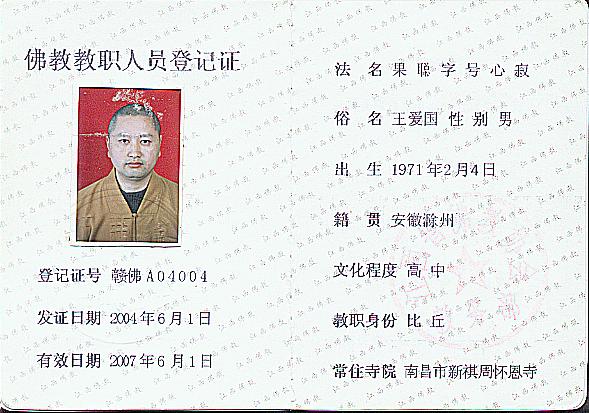 佛教教职人员登记证
登记证号 赣佛A04004
发证日期 2004年6月1日
有效日期 2007年6月1日
法 名 果 聪 字 号 心 寂
俗 名 王爱国 性 别 男
出 生 1971年2月4日
籍 贯 安徽滁州
文化程度 高 中
教职身份 比 丘
常住寺院 南昌市新祺周怀恩寺